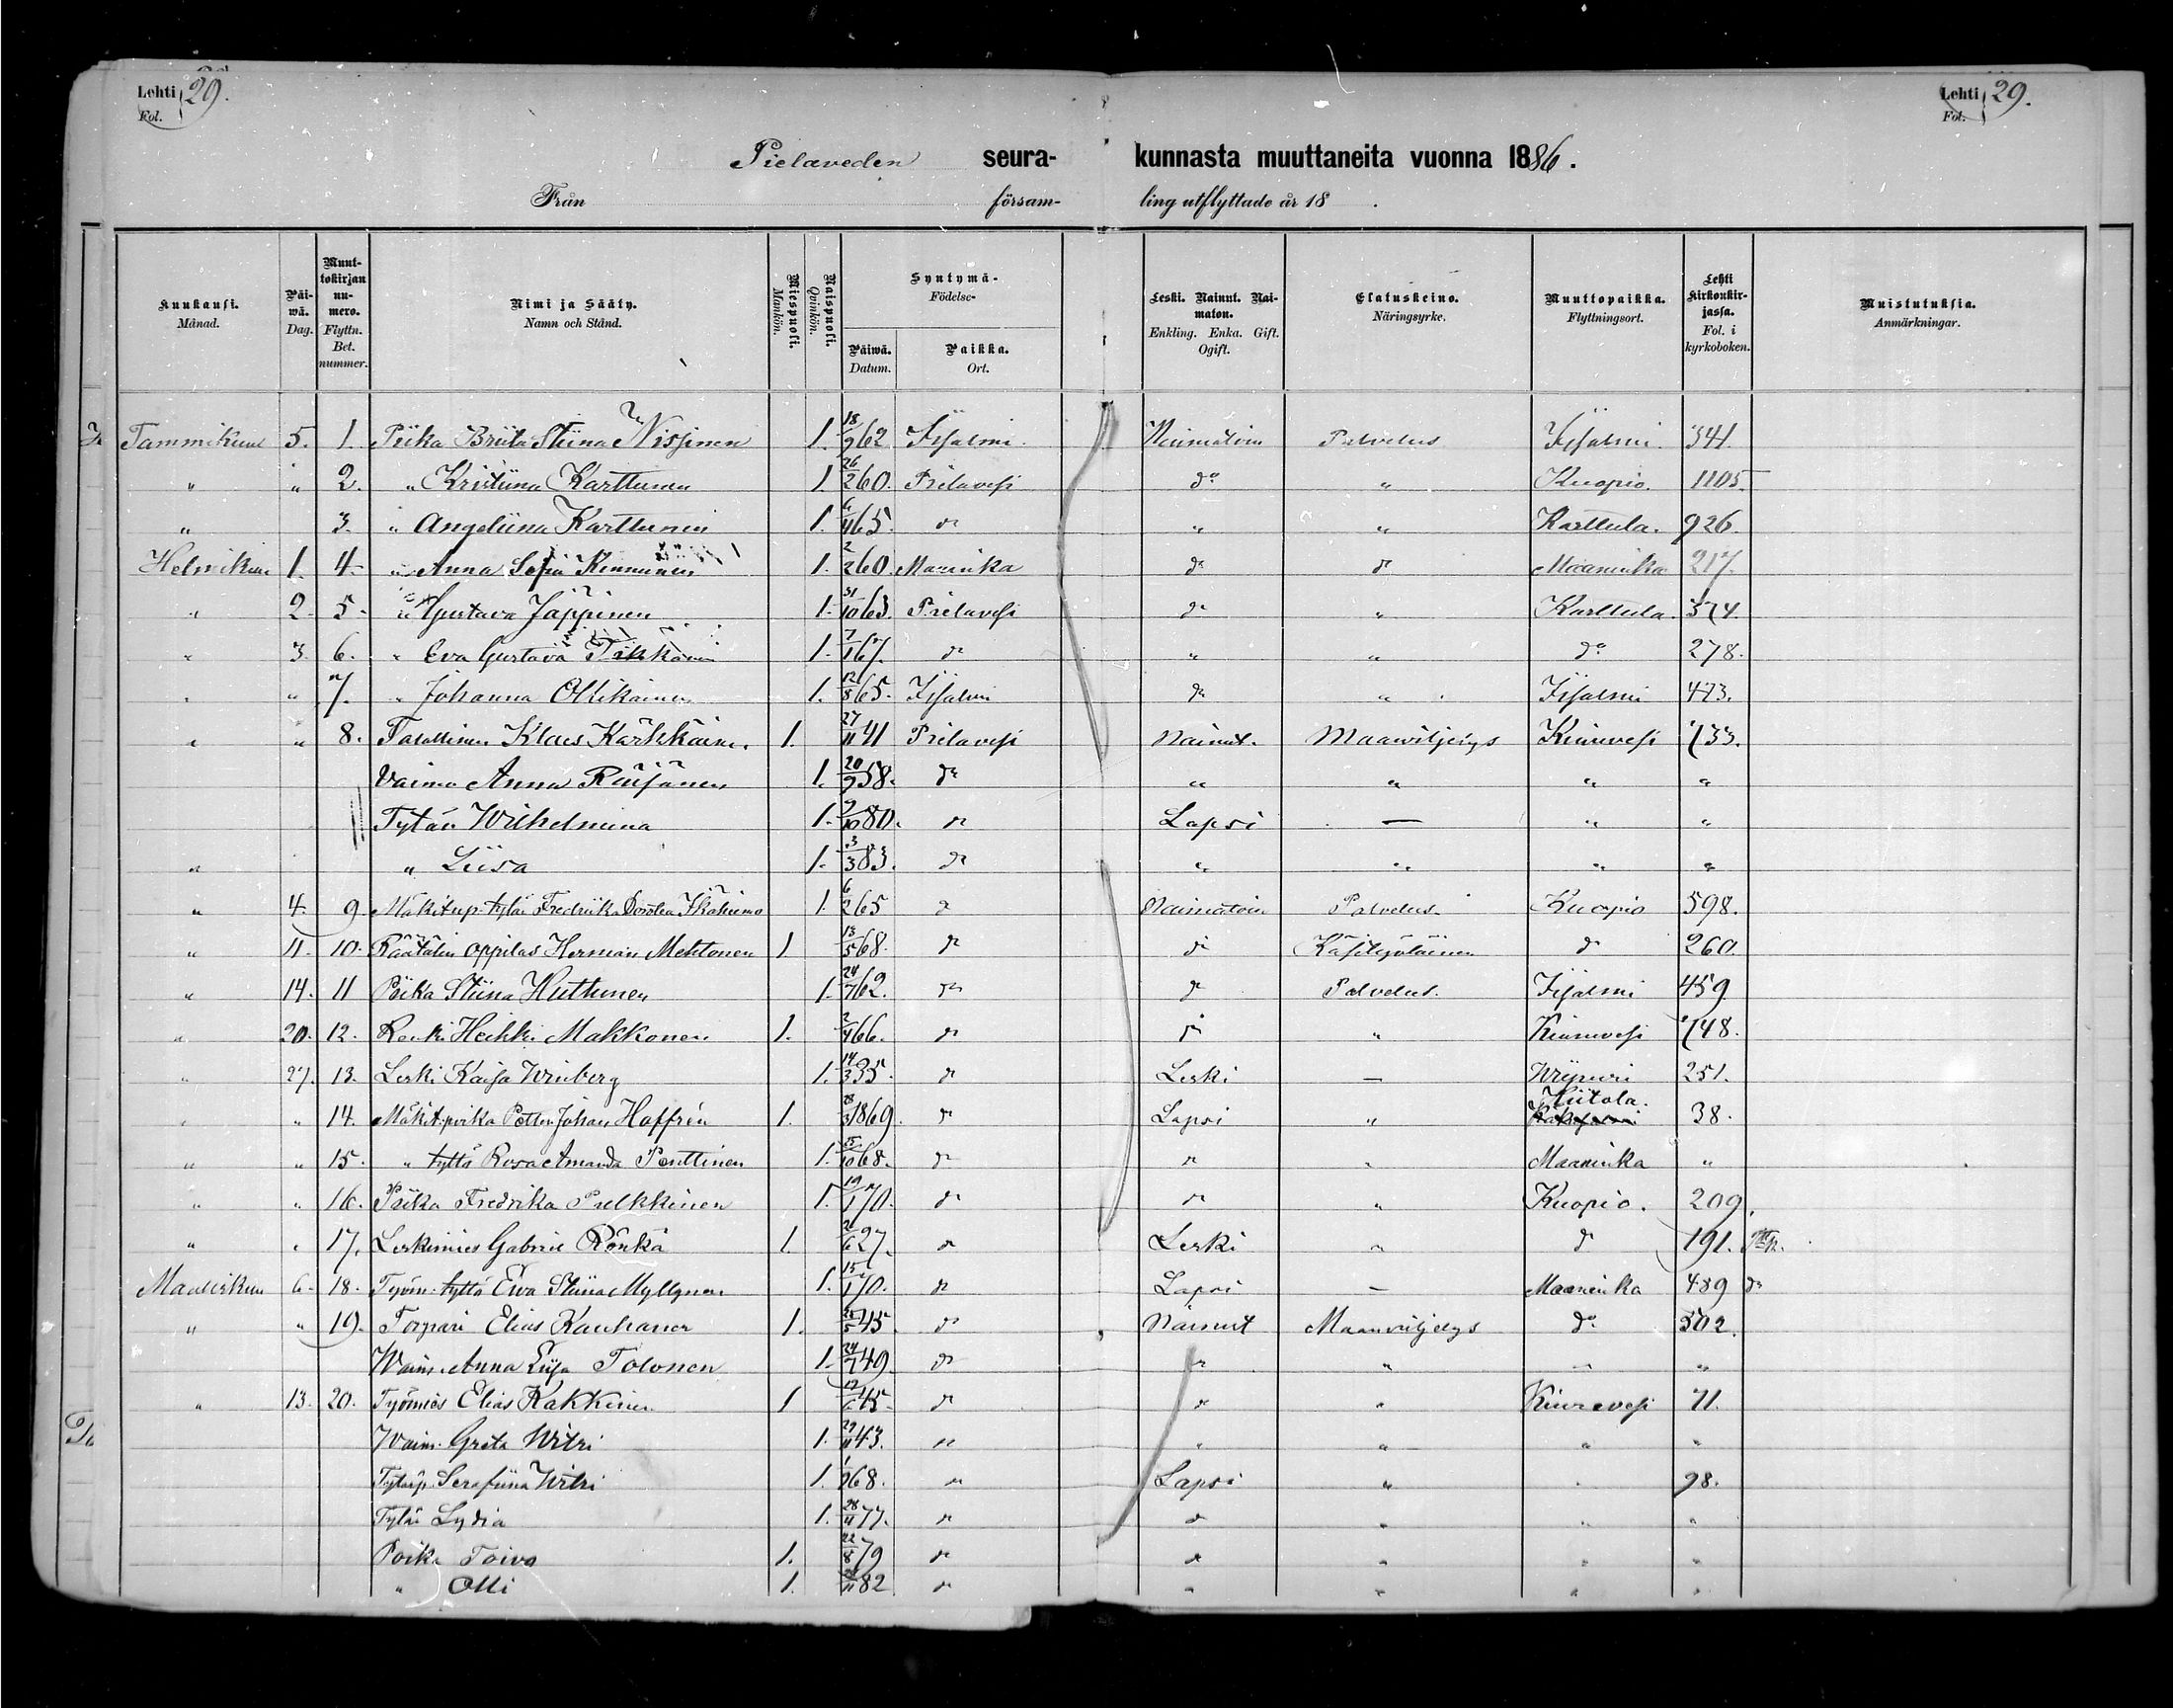 Lehti 29. Lehti 29.
Fol. Fol.
Pielaveden seura- kunnasta muuttaneita vuonna 1886.
Från försam- ling utflyttade år 18 .
Kuukausi. Månad. Päi-wä. Dag. Muut-tokirjan nu-mero. Flyttn. Bet. nummer. Nimi ja Sääty. Namn och Stånd. Miespuoli. Mankön. Naispuoli. Qvinkön. Syntymä- Födelse- Päiwä. Datum. Paikka. Ort. Leski. Nainut. Nai-maton. Enkling. Enka. Gift. Ogift. Elatuskeino. Näringsyrke. Muuttopaikka. Flyttningsort. Lehti Kirkonkir-jassa. Fol. i kyrkoboken. Muistutuksia. Anmärkningar.
Tammikuu 5. 1. Piika Briita Stiina Nissinen 1. 18/9 62 Iisalmi. Naimatoin Palvelus Iisalmi. 341.
" " 2. " Kristiina Karttunen 1. 26/2 60. Pielavesi do " Kuopio. 1105.
" 3. " Angeliina Karttunen 1. 6/11 65. do " " Karttula. 926.
Helmikuu 1. 4. " Anna Sofia Kinnunen 1. 2/2 60. Maaninka do do Maaninka 217.
" 2. 5. " Gustava Jäppinen 1. 31/10 63. Pielavesi do " Karttula. 374.
" 3. 6. " Eva Gustava Tikkanen 1. 7/1 67. do " " do 278.
" " 7. " Johanna Ollikainen 1. 12/8 65. Iisalmi do " Iisalmi 473.
" " 8. Talollinen Klaes Kärkkäinen 1. 27/11 41 Pielavesi Nainut. Maanviljelys Kiuruvesi 733.
Vaimo Anna Räisänen 1. 20/9 58. do " " " "
Tytär Wilhelmina 1. 9/10 80. do Lapsi — " "
" " Liisa 1. 3/3 83. do " " " "
" 4. 9. Mäkitup. tytär Fredriika Dorotea Ikäheimo 1. 6/2 65 do Naimatoin Palvelus. Kuopio 598.
" 11. 10. Räätälin oppilas Herman Mehtonen 1. 13/5 68. do do Käsityöläinen do 260.
" 14. 11 Piika Stiina Huttunen 1. 24/7 62. do do Palvelus. Iisalmi 459
" 20. 12. Renki Heikki Makkonen 1. 2/4 66. do do " Kiuruvesi 748.
" 27. 13. Leski Kaisa Winberg 1. 14/3 35. do Leski — Wiipuri 251.
" " 14. Mäkit. poika Petter Johan Hoffrén 1. 28/3 1869. do Lapsi " Hiitola. 38.
" " 15. " tyttö Rosa Amanda Penttinen 1. 25/10 68. do " " Maaninka "
" " 16. Piika Fredrika Pulkkinen 1. 19/1 70. do do " Kuopio. 209.
" " 17. Leskimies Gabriel Rönkä 1. 2/6 27. do Leski " do 191.
Maaliskuu 6. 18. Työm. tyttö Eva Stiina Myllynen 1. 15/1 70. do Lapsi — Maaninka 489 do
" " 19. Torpari Elias Kauhanen 1. 25/5 45. do Nainut Maanviljelys do 502.
Waim. Anna Liisa Tolonen 1. 24/7 49. do " " " "
" 13. 20. Työmies Elias Kakkinen 1 12/6 45. do " " Kiuruvesi 71.
Waim. Greta Witri 1. 29/11 43. do " " " "
Tytärp. Serafiina Witri 1. 1/9 68. " Lapsi " " 98.
Tytär Lydia 1. 28/11 77. do do " " "
Poika Toivo 1. 22/8 79 do do " " "
" Olli 1. 82 do " " " "